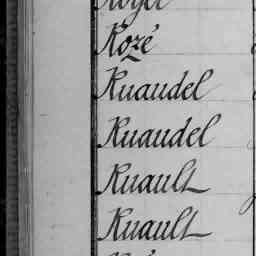 Royer
Rozé
Ruaudel
Ruaudel
Ruault
Ruault